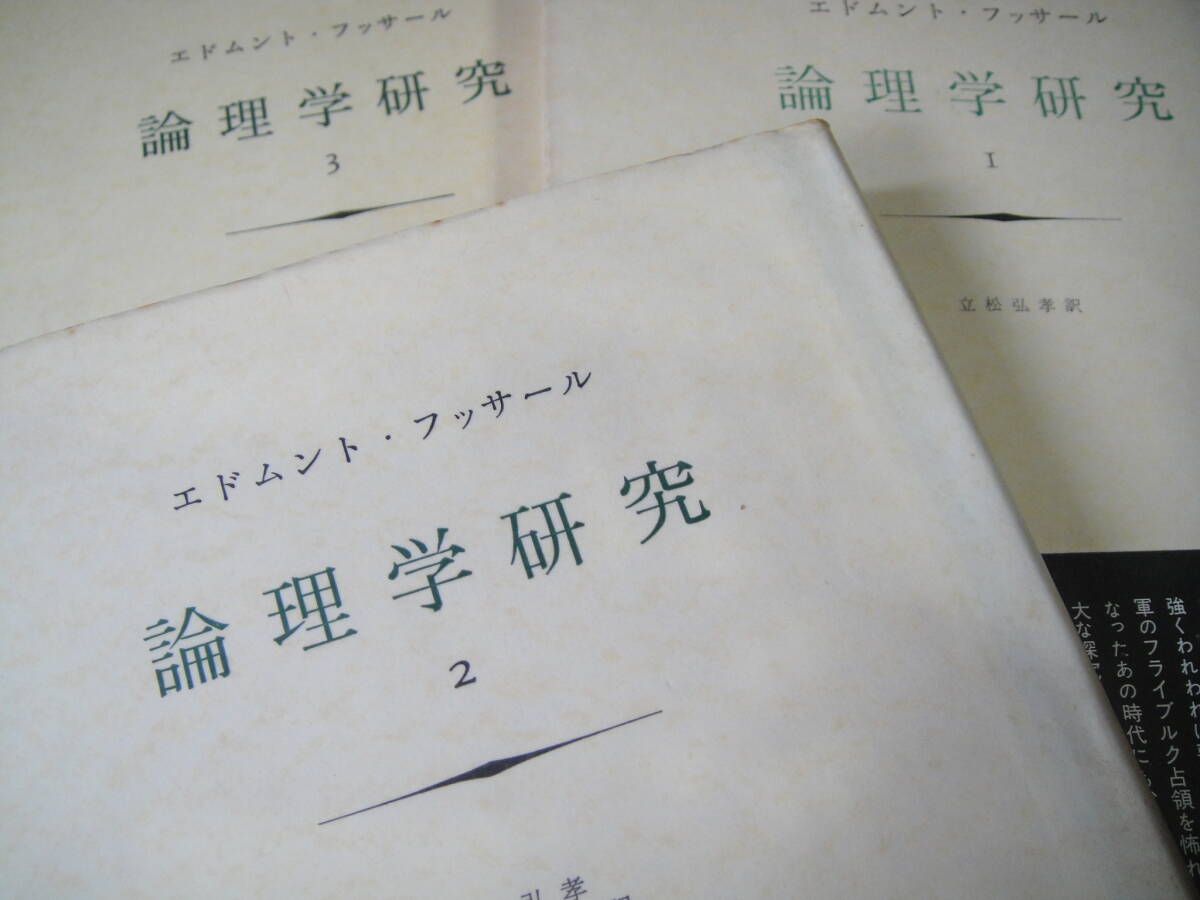 エドムント・フッサール
論理学研究
3
エドムント・フッサール
論理学研究
1
立松弘孝訳
エドムント・フッサール
論理学研究
2
弘孝
強くわれわれに
軍のフライブルク占領を怖れ
なった、あの時代に
大な深